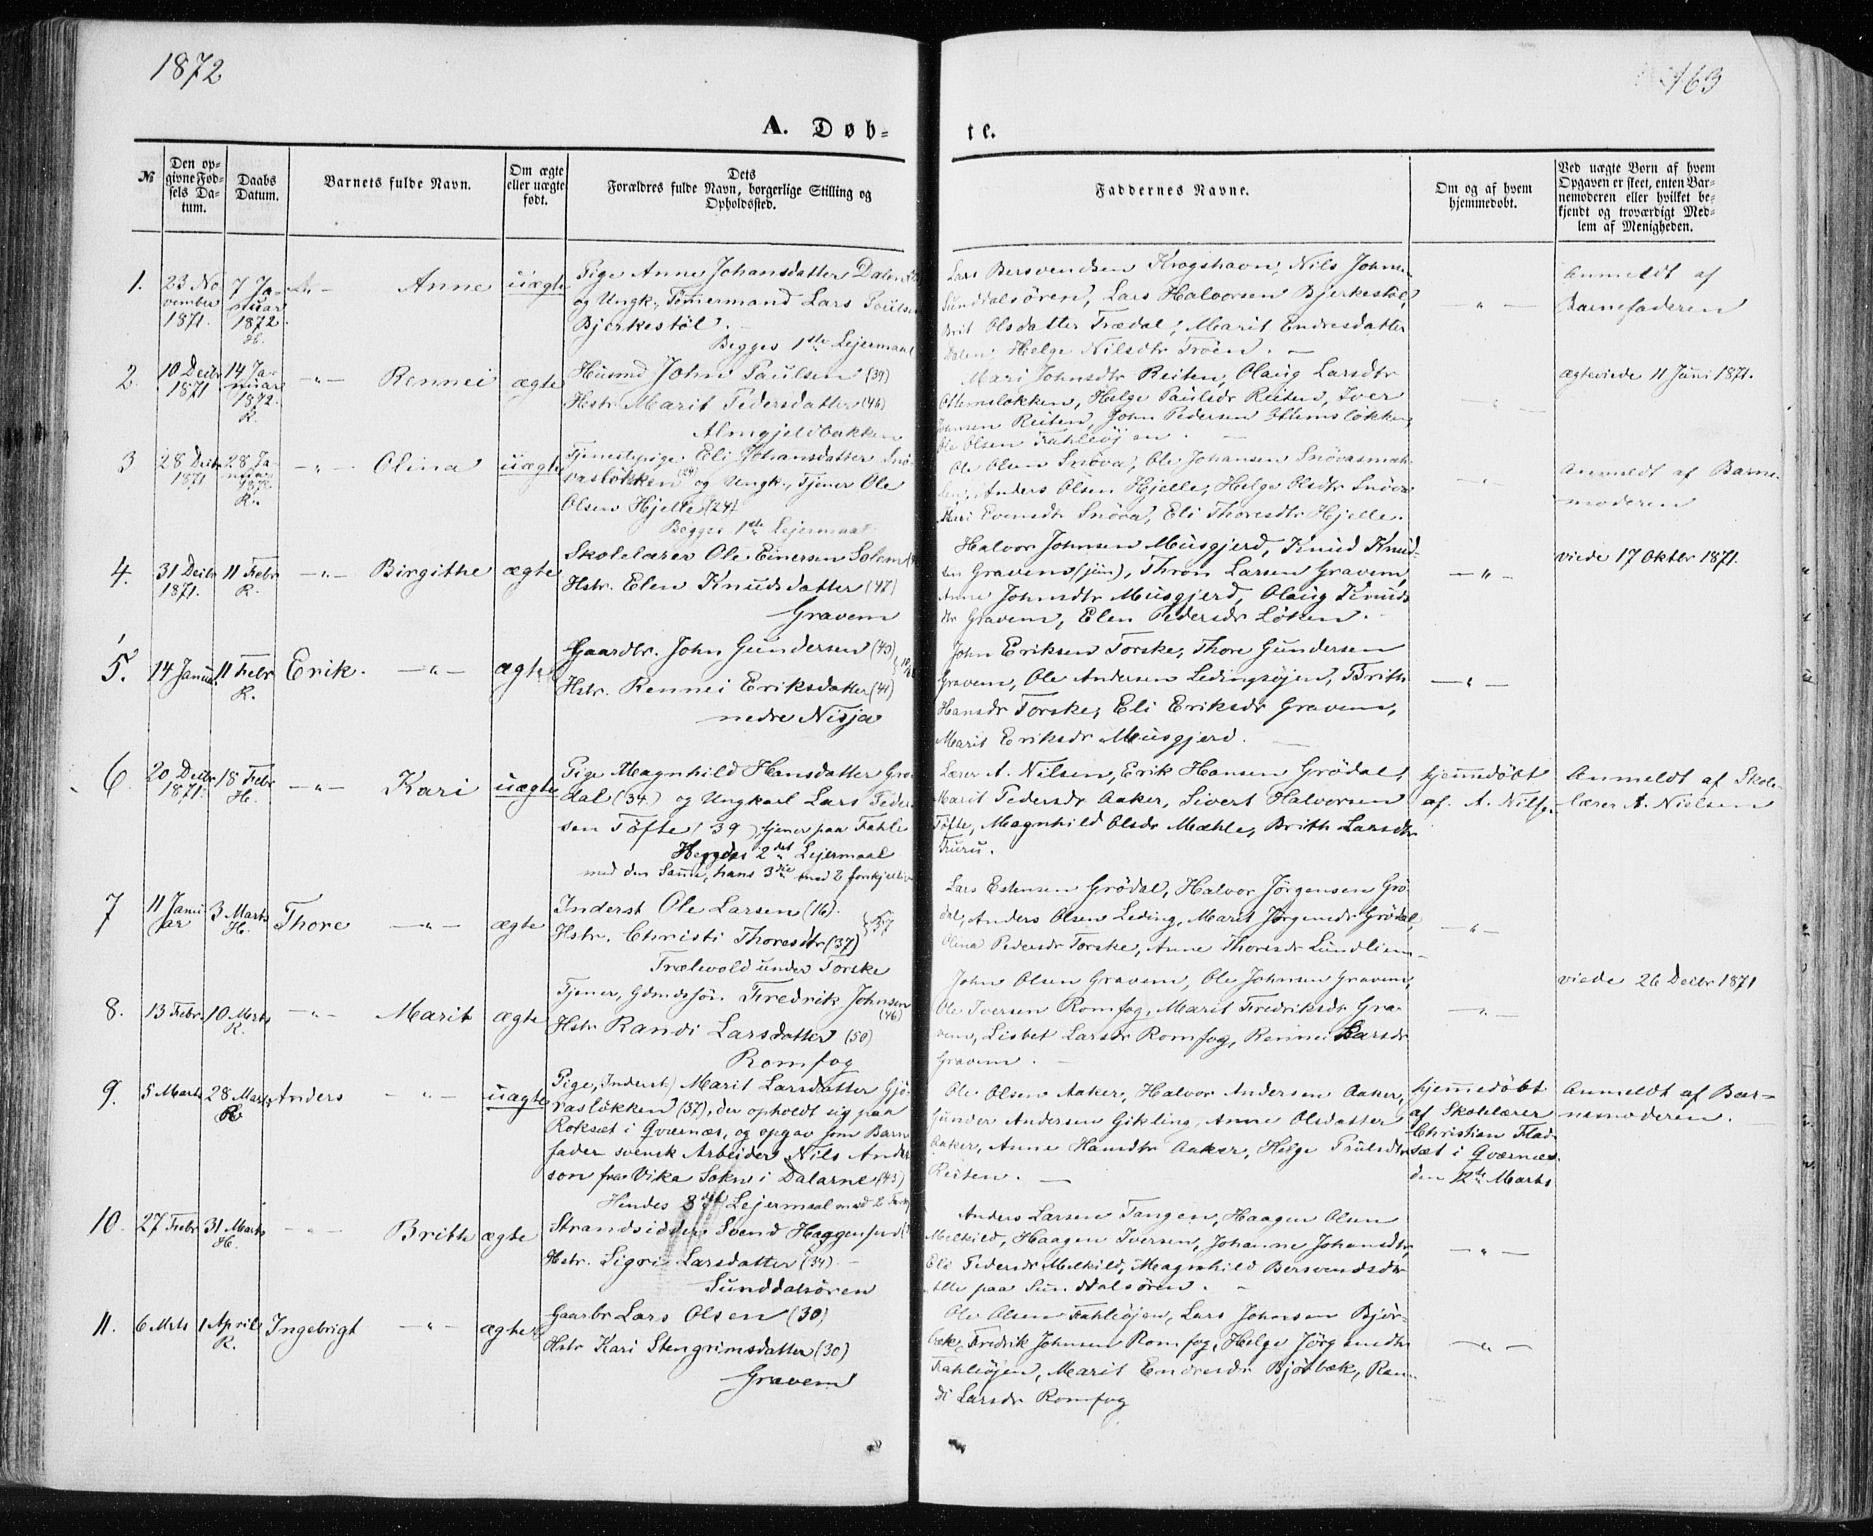 1872
163
A. Døb-
te.
№
Den op-
givne Fød-
sels Da-
tum.
Daabs
Datum.
Barnets fulde Navn.
Om ægte
eller uægte
født.
Dets
Forældres fulde Navn, borgerlige Stilling og
Opholdssted.
Faddernes Navne.
Om og af hvem
hjemmedøbt.
Ved uægte Børn af hvem
Opgaven er skeet, enten Bar-
nemoderen eller hvilket be-
kjendt og troværdigt Med-
lem af Menigheden.
1.
23 No
vember
1871.
7 Ja-
nuar
1872.
H.
Anne
uægte
Pige Anne Johansdatter Dalen
og Ungk., Tømermand Lars Poulsen
Bjerkestøl.
Begges 1ste Lejermaal
Lars Bersvendsen Krogshavn, Nils Johns.
Sunddalsøren, Lars Halvorsen Bjerkestøl,
Brit Olsdatter Trædal, Marit Endresdatter
Dalen, Helge Nilsdtr Troen.
— " —
Anmeldt af
Barnefaderen
2
10 Decbr
1871
14 Ja-
nuar
1872.
R.
— " —
Rennei
ægte
Husmd John Paulsen (39)
Hstr. Marit Pedersdatter (46)
Almgjeldbakken
Mari Johnsdtr Reiten, Olaug Larsdtr
Ottemsløkken, Helge Paulsdr Reiten, Iver
Johnsen Reiten, John Pedersen Ottemsløkken,
Ole Olsen Fahleøjen.
— " —
ægteviede 11 Juni 1871.
3
28 Decbr
1871
28 Ja-
nuar
1872.
R.
— " —
Olina
uægte
Tjenestepige Eli Johansdatter Snø-
vasløkken (29) og Ungk., Tjener Ole
Olsen Hjelle (24)
Begges 1ste Lejermaal
Ole Olsen Snøva, Ole Johansen Snøvasmæh-
len, Anders Olsen Hjelle, Helge Olsdtr Snøva
Mari Evensdtr Snøva, Eli Thoresdtr Hjelle.
— " —
Anmeldt af Barne-
moderen
4.
31 Decbr
1871.
11 Febr
R.
— " —
Birgithe
ægte
Skolelærer Ole Einersen Solem
Hstr. Elen Knudsdatter (47)
Gravem
Halvor Johnsen Musgjerd, Knud Knud-
sen Gravem (jun), Thron Larsen Gravem,
Anne Johnsdtr Musgjerd, Olaug Knuds
dtr Gravem, Elen Pedersdr Løken.
— " —
viede 17 Oktbr 1871.
5.
14 Januar
11 Febr
R.
Erik.
— " —
ægte
Gaardbr. John Gundersen (43)
Hstr. Rennei Eriksdatter (41)
nedre Nisja
John Eriksen Torske, Thore Gundersen
Gravem, Ole Andersen Ledingsøjen, Brith
Hansdr Torske, Eli Eriksdr Gravem,
Marit Eriksdr Musgjerd.
— " —
6.
20 Decbr
1871.
18 Febr
H.
— " —
Kari
uægte
Pige Magnhild Hansdatter Grø-
dal (34) og Ungkarl Lars Peder-
sen Tøfte (39), tjener paa Fahle
Hendes 2det Lejermaal
med den Samme, hans 3die med 2 forskjellige
Lærer A. Nilsen, Erik Hansen Grødal,
Marit Pedersdr Aaker, Sivert Halvorsen
Tøfte, Magnhild Olsdr Mæhle, Brith Larsdtr
Furu.
hjemmedøbt
af A. Nilss.
Anmeldt af Skole-
lærer A. Nielsen
7
11 Janu
ar
3 Marts
H.
Thore
— " —
ægte
Inderst Ole Larsen (16).
Hstr. Christi Thoresdtr (37)
57
Trælvold under Torske
Lars Estensen Grødal, Halvor Jørgensen Grø-
dal, Anders Olsen Leding, Marit Jørgensdr Grødal,
Olina Pedersdr Torske, Anne Thoresdr Lundliem
— " —
8.
13 Febr
10 Marts
R.
— " —
Marit
ægte
Tjener, Gdmdssøn Fredrik Johnsen
(46)
Hstr Randi Larsdatter (50)
Romfog
John Olsen Gravem, Ole Johnsen Gravem,
Ole Iversen Romfog, Marit Fredriksdr Gra-
vem, Lisbet Larsdr Romfog, Rennei Larsdr
Gravem.
— " —
viede 26 Decbr 1871
9.
5 Marts
28 Marts
R
Anders
— " —
uægte
Pige, (Inderst) Marit Larsdatter Gjø-
rasløkken (37), der opholdt sig paa
Roksæt i Qværnæs, og opgav som Barne
fader svensk Arbeider Nils Ander
son fra Vika Sokn i Dalarne (43)
Hendes 3die Lejermaal med 2
Ole Olsen Aaker, Halvor Andersen Aaker,
Gunder Andersen Gikling, Anne Olsdatter
Aaker, Anne Hansdtr Aaker, Helge Paulsdtr
Reiten.
hjemmedøbt
af Skolelærer
Christian Flad-
sæt i Qværnæs
den 12te Marts
Anmeldt af Bar-
nemoderen.
10.
27 Febr
31 Marts
H.
— " —
Brith
ægte
Strandsidder Svend Haagensen
Hstr. Sigri Larsdatter (34)
Sunddalsøren
Anders Larsen Tangen, Haagen Olsen
Melkild, Haagen Iversen, Johanne Johansdtr,
Eli Pedersdr Melkild, Magnhild Bersvendsdtr
Alle paa Sunddalsøren.
— " —
11.
6 Mrts
1 April
R.
Ingebrigt
— " —
ægte
Gaarbr Lars Olsen (30)
Hstr Kari Stengrimsdatter (30)
Gravem
Ole Olsen Fahleøjen, Lars Johnsen Bjør-
bæk, Fredrik Johnsen Romfog, Helge Jørgensdtr
Fahleøjen, Marit Endresdr Bjørbæk, Ran-
di Larsdr Romfog
— " —